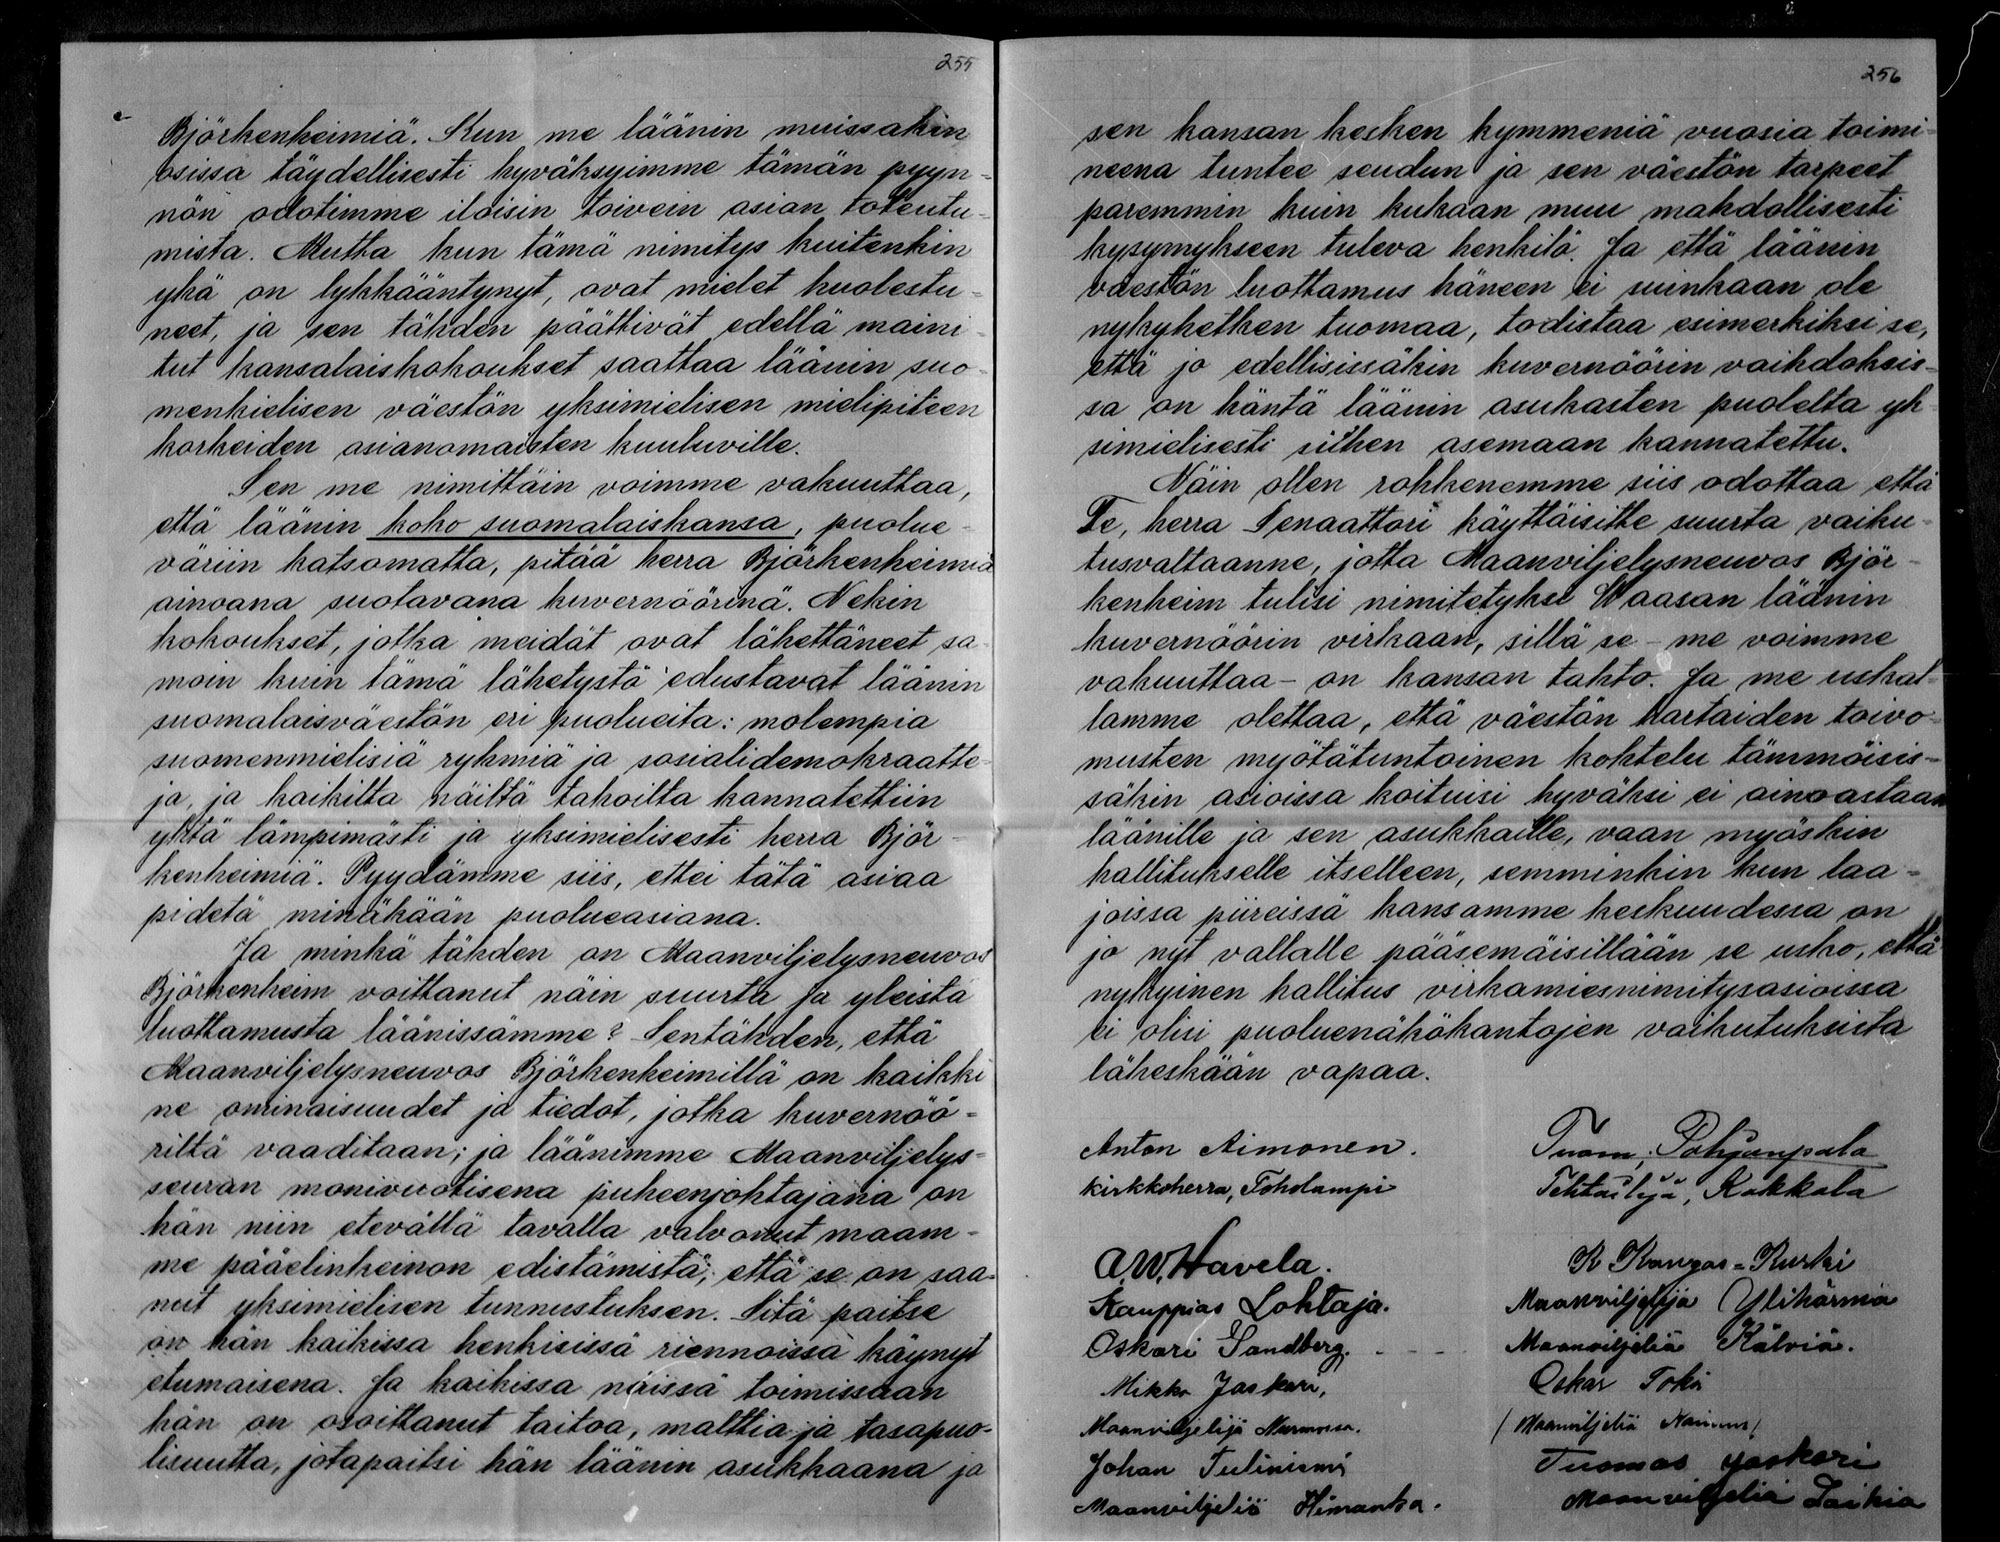 255
Björkenheimiä. Kun me läänin muissakin
osissa täydellisesti hyväksyimme tämän pyyn-
nön odotimme iloisin toivein asian toteutu-
mista. Mutta kun tämä nimitys kuitenkin
yhä on lykkääntynyt, ovat mielet huolestu-
neet, ja sen tähden päättivät edellä maini-
tut kansalaiskokoukset saattaa läänin suo-
menkielisen väestön yksimielisen mielipiteen
korkeiden asianomaisten kuuluville.
Sen me nimittäin voimme vakuuttaa,
että läänin koko suomalaiskansa, puolue-
väriin katsomatta, pitää herra Björkenheimiä
ainoana suotavana kuvernöörinä. Nekin
kokoukset, jotka meidät ovat lähettäneet sa-
moin kuin tämä lähetystö edustavat läänin
suomalaisväestön eri puolueita: molempia
suomenmielisiä ryhmiä ja sosialidemokraatte-
ja, ja kaikilta näiltä tahoilta kannatettiin
yhtä lämpimästi ja yksimielisesti herra Björ-
kenheimiä. Pyydämme siis, ettei tätä asiaa
pidetä minäkään puolueasiana.
Ja minkä tähden on Maanviljelysneuvos
Björkenheim voittanut näin suurta ja yleistä
luottamusta läänissämme? Sentähden, että
Maanviljelysneuvos Björkenheimillä on kaikki
ne ominaisuudet ja tiedot, jotka kuvernöö-
riltä vaaditaan; ja läänimme Maanviljelys-
seuran monivuotisena puheenjohtajana on
hän niin etevällä tavalla valvonut maam-
me pääelinkeinon edistämistä, että se on saa-
nut yksimielisen tunnustuksen. Sitä paitse
on hän kaikissa henkisissä riennoissa käynyt
etumaisena. Ja kaikissa näissä toimissaan
hän on osoittanut taitoa, malttia ja tasapuo-
lisuutta, jotapaitsi hän läänin asukkaana ja
256
sen kansan kesken kymmeniä vuosia toimi-
neena tuntee seudun ja sen väestön tarpeet
paremmin kuin kukaan muu mahdollisesti
kysymykseen tuleva henkilö. Ja että läänin
väestön luottamus häneen ei suinkaan ole
nykyhetken tuomaa, todistaa esimerkiksi se,
että jo edellisissäkin kuvernöörin vaihdoksis-
sa on häntä läänin asukasten puolelta yk-
simielisesti siihen asemaan kannatettu.
Näin ollen rohkenemme siis odottaa että
Te, herra Senaattori käyttäisitte suurta vaiku-
tusvaltaanne, jotta Maanviljelysneuvos Björ-
kenheim tulisi nimitetyksi Waasan läänin
kuvernöörin virkaan, sillä se - me voimme
vakuuttaa - on kansan tahto. Ja me uskal-
lamme olettaa, että väestön hartaiden toivo-
musten myötätuntoinen kohtelu tämmöisis-
säkin asioissa koituisi hyväksi ei ainoastaan
läänille ja sen asukkaille, vaan myöskin
hallitukselle itselleen, semminkin kun laa-
joissa piireissä kansamme keskuudessa on
jo nyt vallalle pääsemäisillään se usko, että
nykyinen hallitus virkamiesnimitysasioissa
ei olisi puoluenäkökantojen vaikutuksista
läheskään vapaa.
Anton Aimonen.
Kirkkoherra, Toholampi
Tuom. Pohjanpalo
Tehtailija, Kokkola
A.W. Havela.
Kauppias Lohtaja.
K Kangas-Kurki
Maanviljelijä Ylihärmä
Oskari Sandberg.
Maanviljeliä Kälviä.
Mikko Jaskari,
Maanviljelijä Nurmossa.
Oskar Toko
(Maanviljeliä
Johan Tuliniemi
Maanviljeliä Himanka.
Tuomas Jaskari
Maanviljeliä Laihia